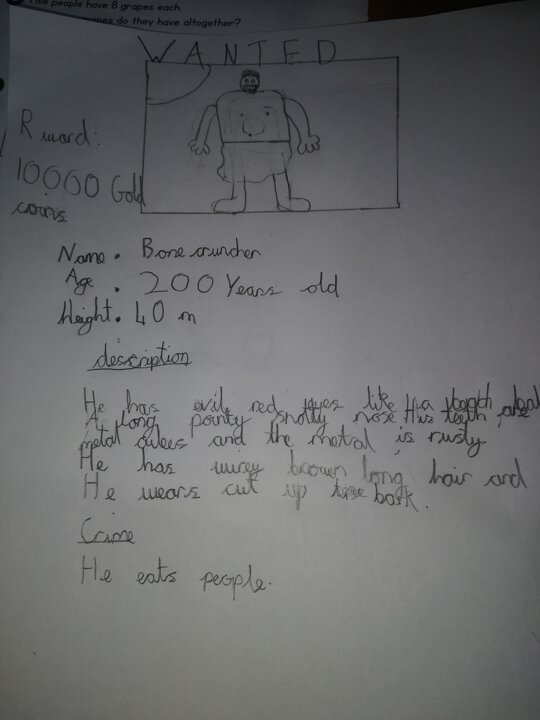 Five people have 8 grapes each.
do they have altogether?
WANTED
Rward:
10000 Gold
coins
Name. Bone cruncher
Age . 200 Years old
Height. 40 m
description
He has evil red eyes like a beach ball
A long pointy snotty nose His teeth are
metal and the metal is rusty
He has wirey brown long hair and
He wears cut up tree bark.
Crime
He eats people.